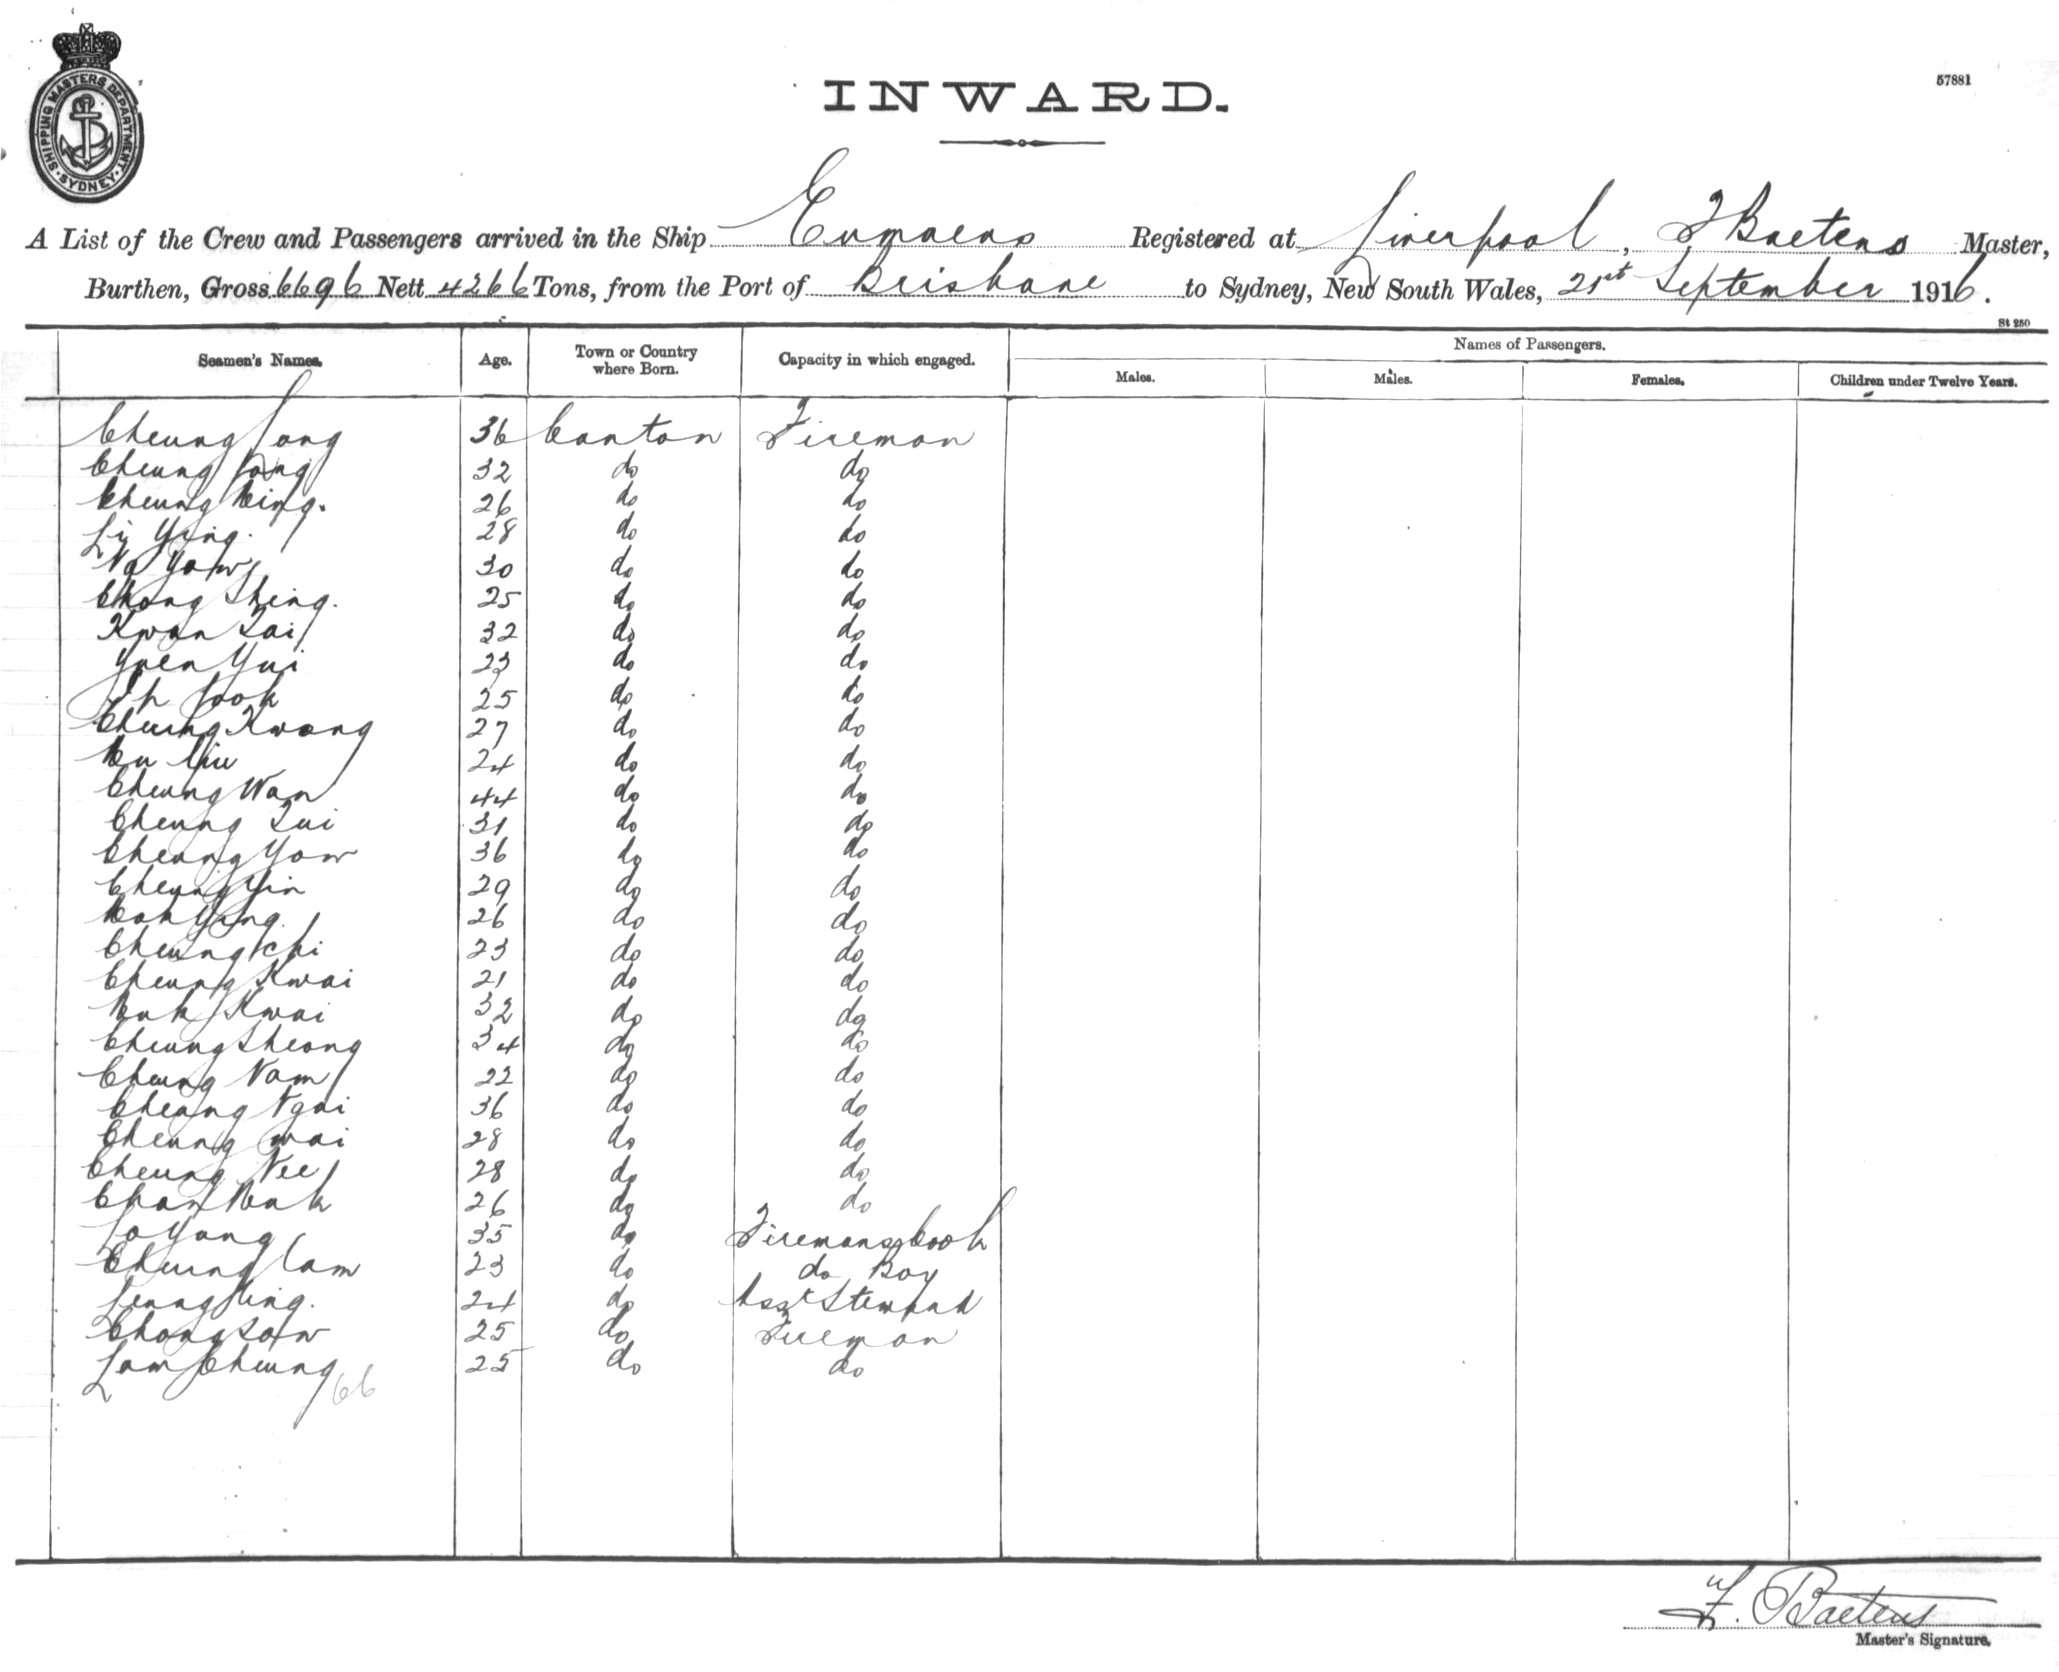 SHIPPING MASTERS DEPARTMENT SYDNEY
INWARD.
57881
A List of the Crew and Passengers arrived in the Ship Eumaeus Registered at Liverpool, F Baetens Master,
Burthen, Gross 6696 Nett 4266 Tons, from the Port of Brisbane to Sydney, New South Wales, 21st September 1916.
St 250
Seamen's Names. Age. Town or Country where Born. Capacity in which engaged. Names of Passengers.
Males. Males. Females. Children under Twelve Years.
Cheung 36 Canton Fireman
Cheung 32 do do
Cheung 26 do do
Li Ying. 28 do do
Yow 30 do do
Chong Shing. 25 do do
Kwan Tai 32 do do
Yuen Yui 23 do do
25 do do
Cheung Kwong 27 do do
24 do do
Cheung Wan 44 do do
Cheung Tui 31 do do
Cheung Yow 36 do do
Cheung Yin 29 do do
26 do do
Cheung Chi 23 do do
Cheung Kwai 21 do do
Kwai 32 do do
Cheung Sheong 34 do do
Cheung Nam 22 do do
Cheung Ngai 36 do do
Cheung Wai 28 do do
Cheung Nee 28 do do
Chan 26 do do
Lo Yung 35 do Firemans Cook
Cheung Cam 23 do do Boy
Leung 24 do Asst Steward
Chong Sow 25 do Fireman
Lam Cheung 25 do do
66
F. Baetens
Master's Signature.